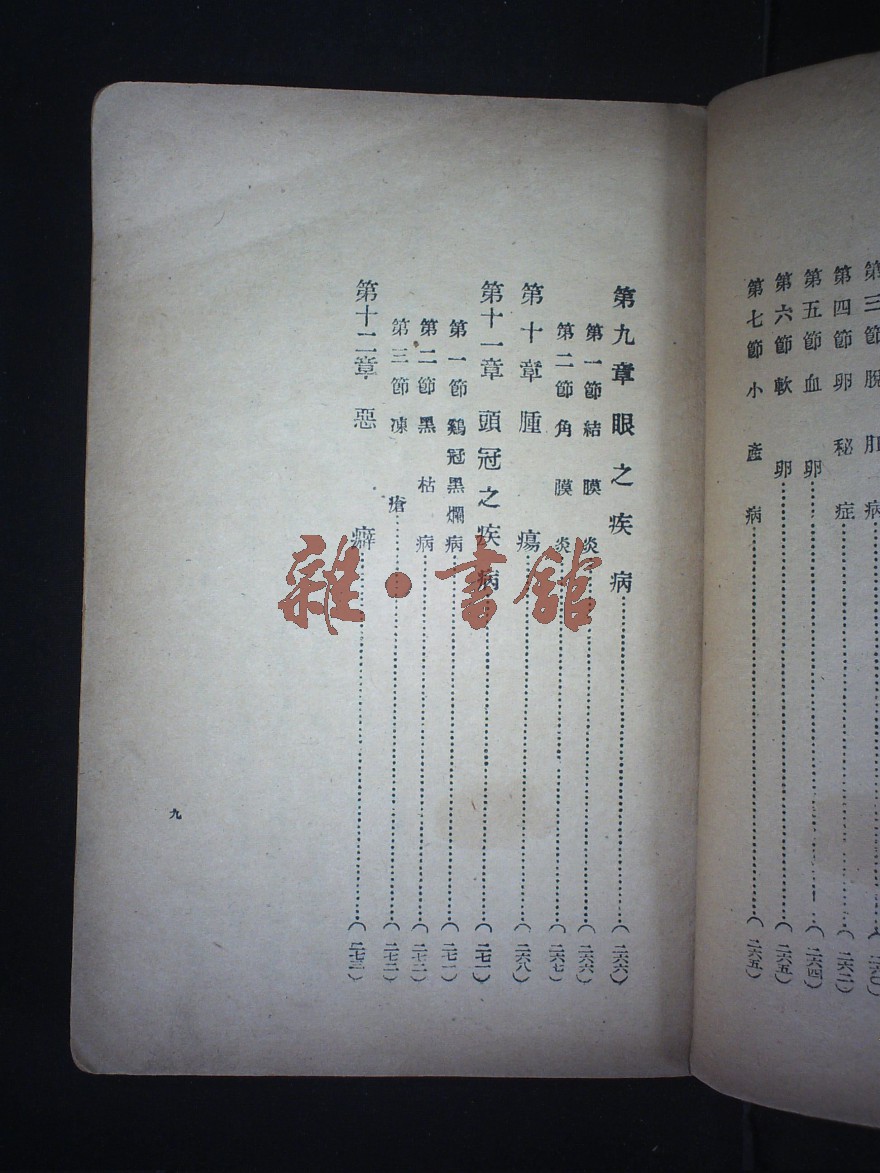 第三節 脫肛病……(二六〇)
第四節 卵秘症……(二六二)
第五節 血卵……(二六四)
第六節 軟卵……(二六五)
第七節 小產病……(二六五)
第九章 眼之疾病……(二六六)
第一節 結膜炎……(二六六)
第二節 角膜炎……(二六七)
第十章 腫瘍……(二六八)
第十一章 頭冠之疾病……(二七一)
第一節 鷄冠黑爛病……(二七一)
第二節 黑枯病……(二七二)
第三節 凍瘡……(二七二)
第十二章 惡癖……(二七三)
九
雜·書館